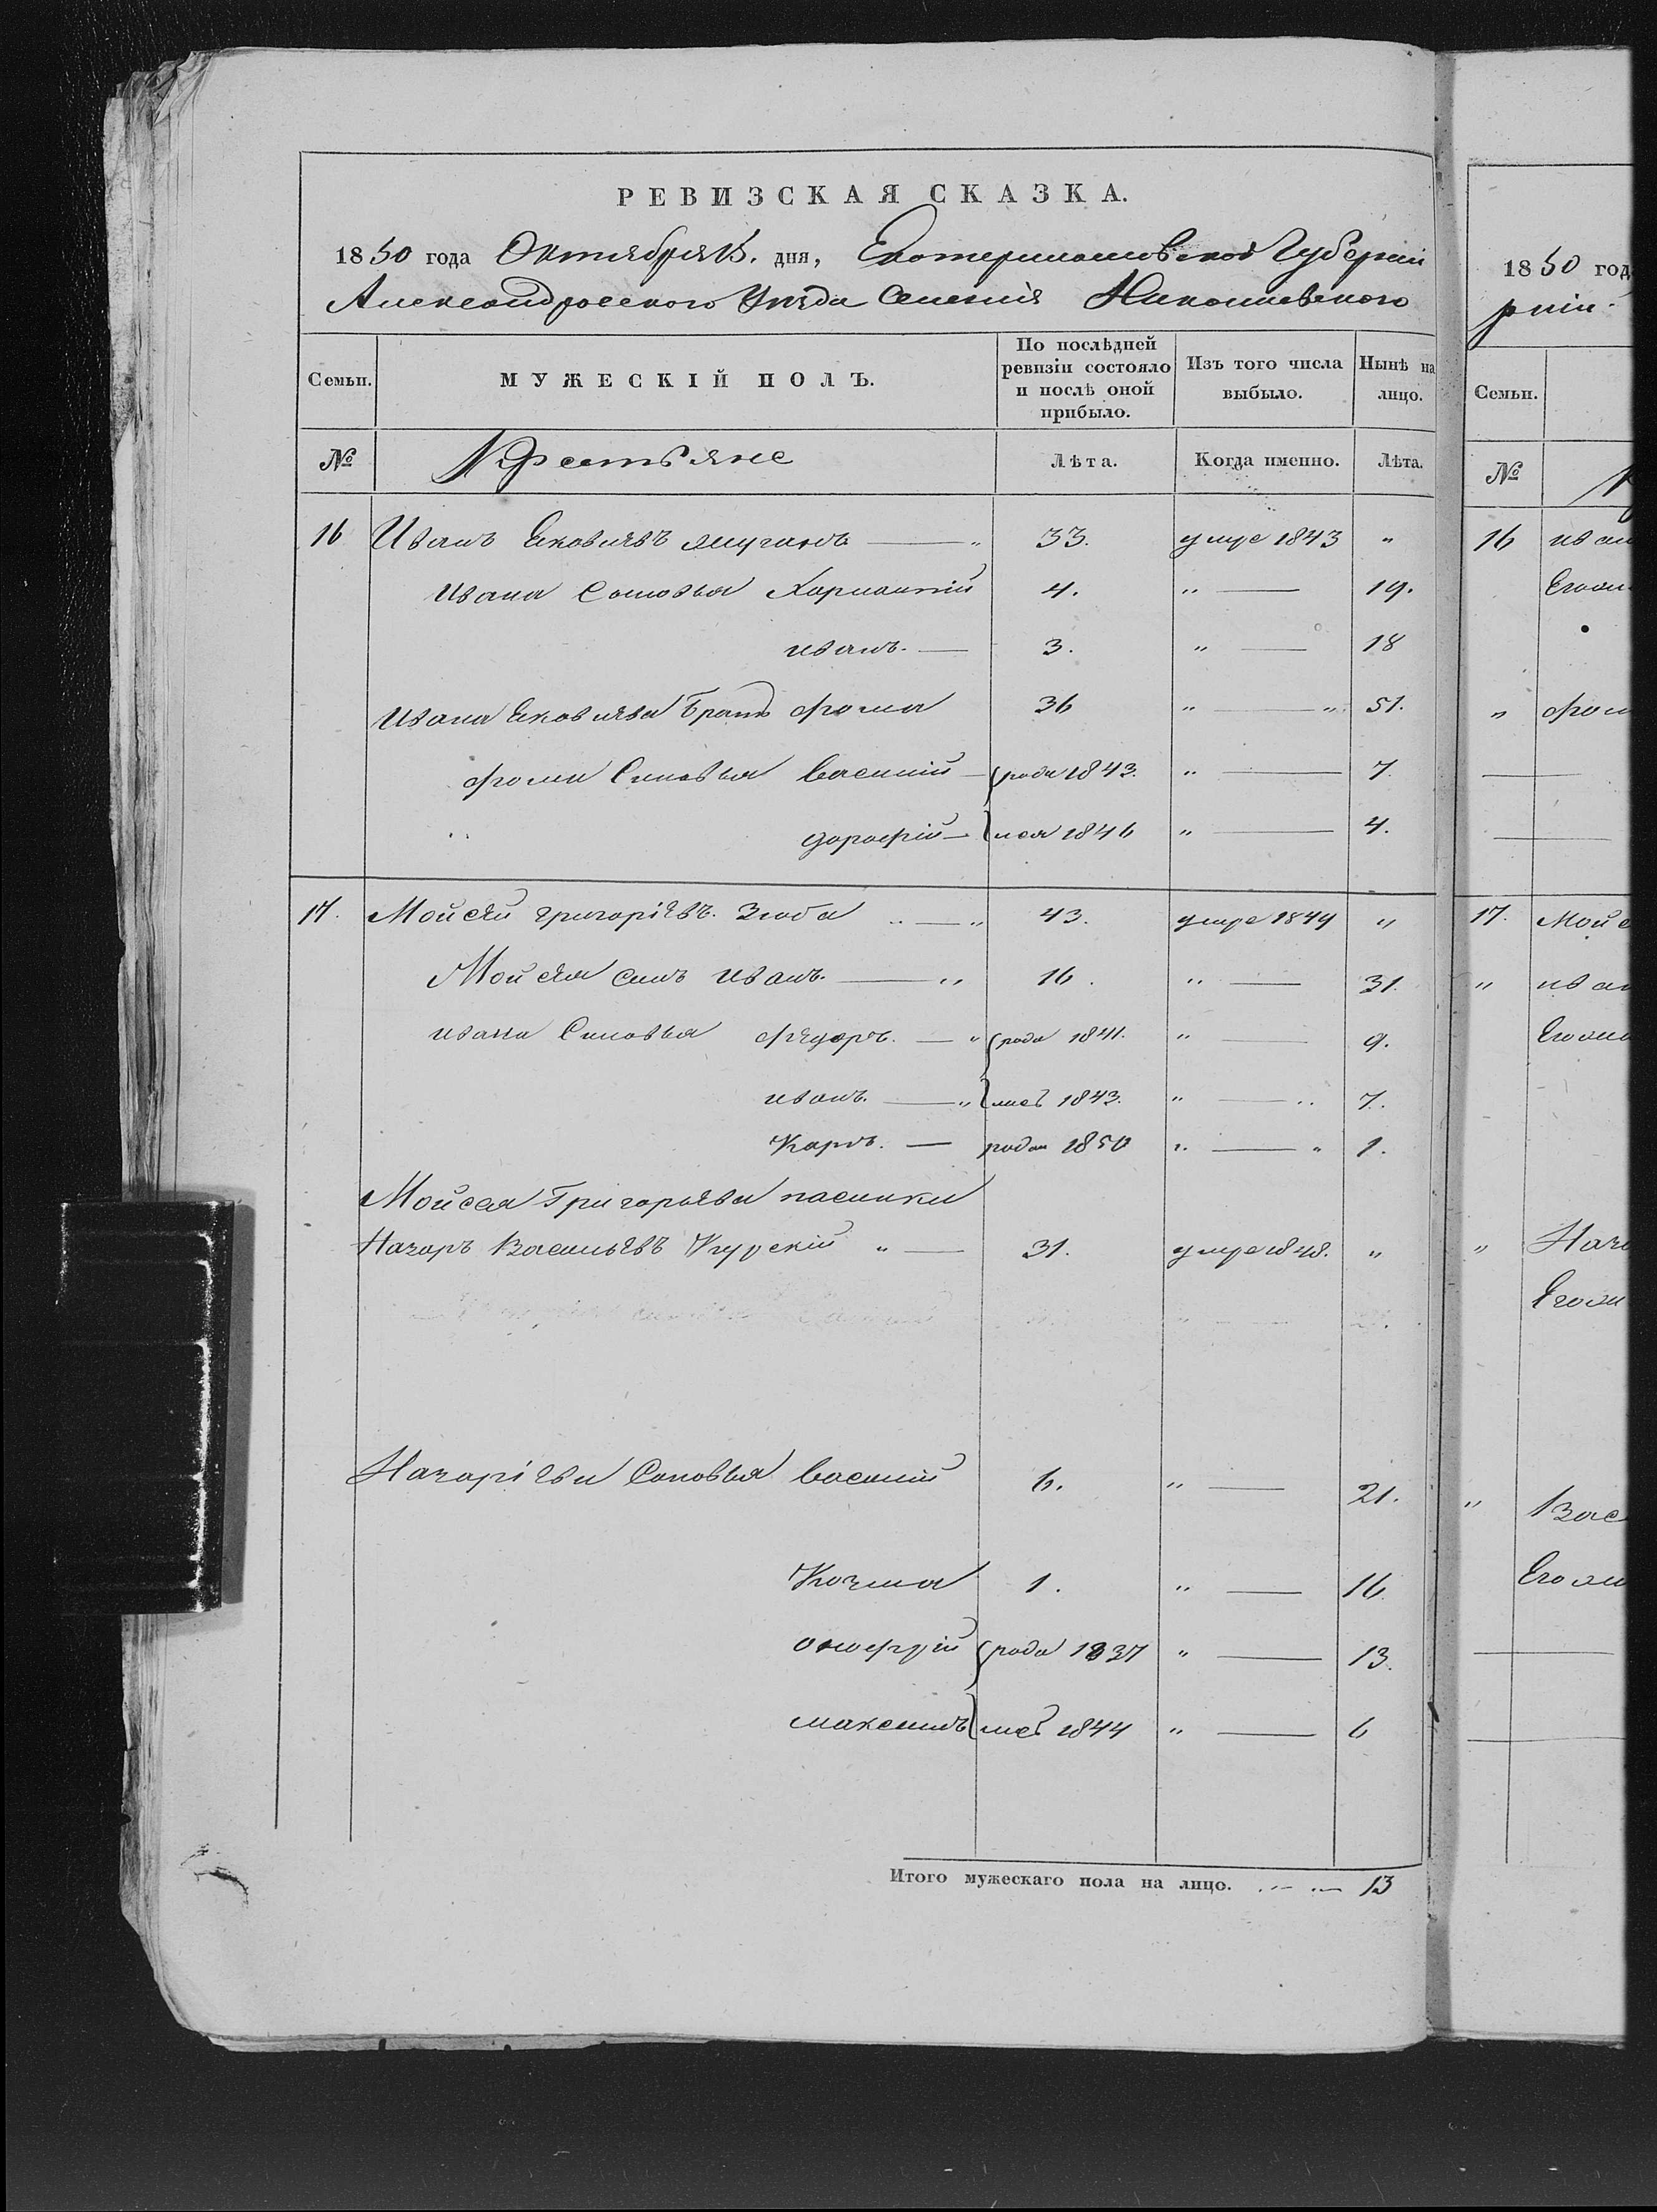 РЕВИЗСКАЯ СКАЗКА.
1850 года Октября 15. дня, Екотеринославской Губерніи
Александровского Уѣзда Селенія Николаевского
Семьи. МУЖЕСКІЙ ПОЛЪ. По послѣдней ревизіи состояло и послѣ оной прибыло. Изъ того числа выбыло. Нынѣ на лицо.
№ Крестьяне Лѣта. Когда именно. Лѣта.
16 Иванъ Яковлевъ — „ 33. умре 1843 „
Ивана Сыновья Харлампій 4. „ — 19.
иванъ. — 3. „ — 18
Ивана Яковлева Братъ фома 36 „ — „ 51.
фомы Сыновья Василий — рода 1843. „ — 7.
дорофій — 1846 „ — 4.
17. Мойсей григоріевъ. Зюба „ — „ 43. умре 1849 „
Мойсея сынъ иванъ. — „ 16. „ — 31.
ивана Сыновья федоръ. — „ рода 1841. „ — 9.
иванъ. — „ 1843. „ — „ 7.
Карпъ. — родом 1850 „ — „ 1.
Мойсея Григорьева пасинки
Назаръ Васильевъ Курскій „ — 31. умре 1848. „
Назаріеви Сыновья Василий 6. „ — 21.
Козма 1. „ — 16
онофрій рода 1837 „ — 13.
максимъ 1844 „ — 6
Итого мужескаго пола на лицо. 13
1850 год
рніи
Семьи.
№
16 иван
„ фом
17. Мойс
„ иван
„ Наза
„ Вас